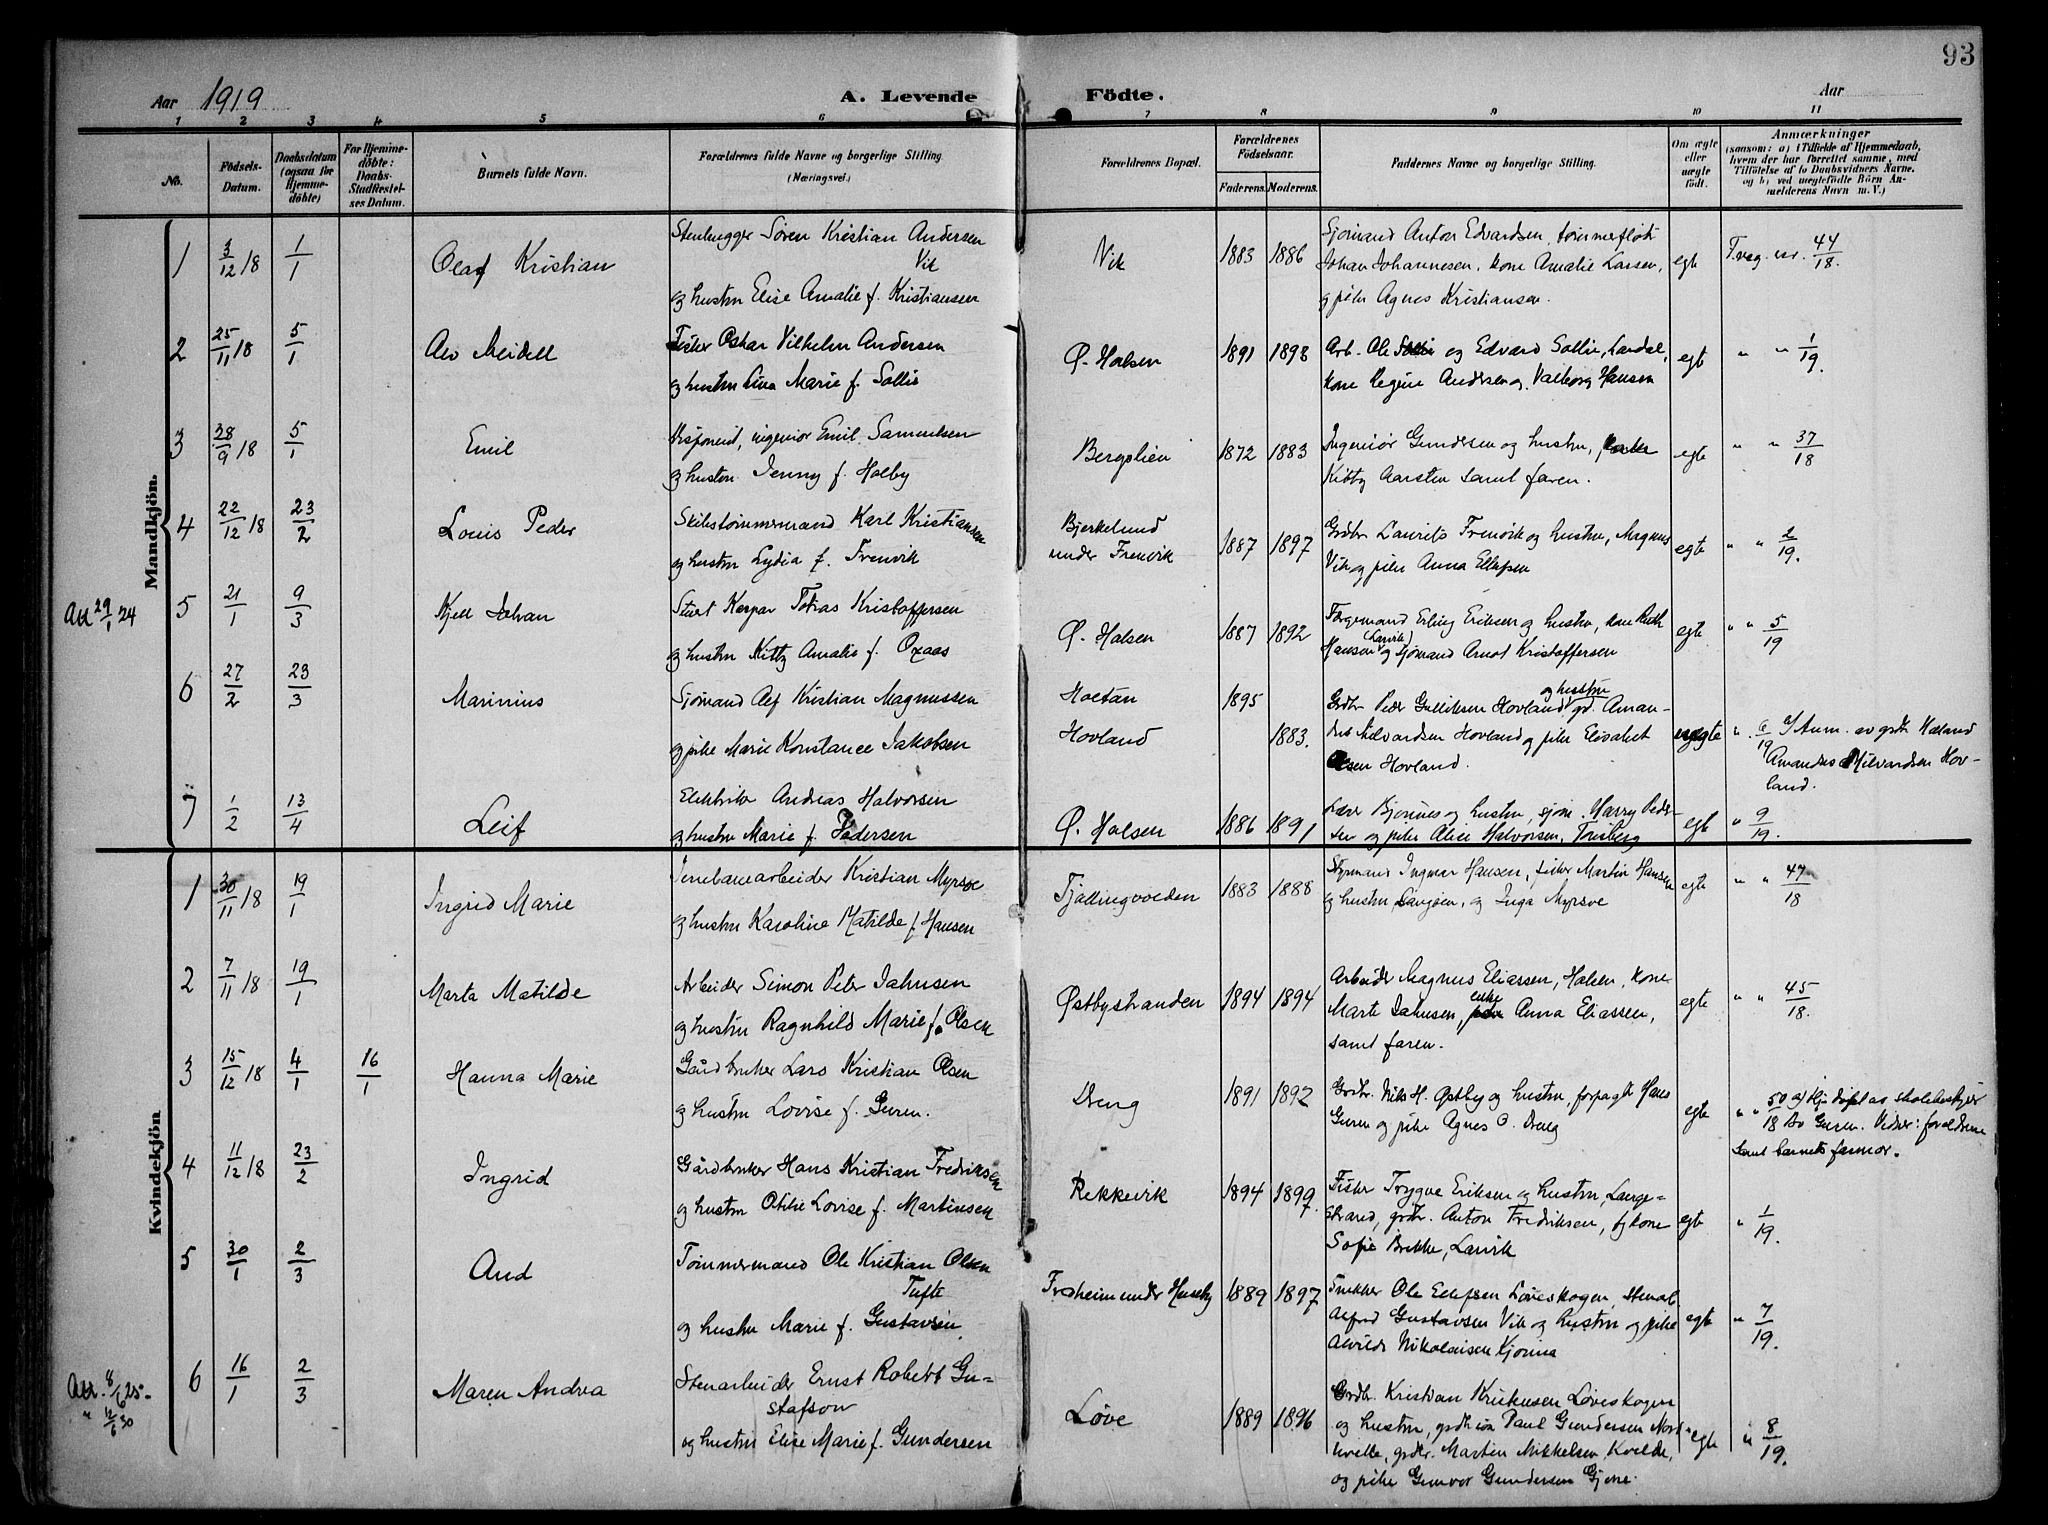 93
Aar 1919
A. Levende Födte.
Aar
1 2 3 4 5 6 7 8 9 10 11
No.
Födsels-
Datum.
Daabsdatum
(ogsaa for
Hjemme-
döbte)
For Hjemme-
döbte:
Daabs-
Stadfæstel-
ses Datum.
Barnets fulde Navn.
Forældrenes fulde Navne og borgerlige Stilling.
(Næringsvei.)
Forældrenes Bopæl.
Forældrenes
Födselsaar.
Faderens. Moderens.
Faddernes Navne og borgerlige Stilling.
Om ægte
eller
uægte
födt.
Anmærkninger
(saasom: a) i Tilfælde af Hjemmedaab,
hvem der har forrettet samme, med
Tilföielse af to Daabsvidners Navne.
og b) ved uægtefödte Börn An-
melderens Navn m. V.)
Mandkjön.
1 3/12 18 1/1 Olaf Kristian
Stenhugger Sören Kristian Andersen
Vik
og hustru Elise Amalie f. Kristiansen
Vik 1883 1886
Sjömand Anton Edvardsen, tömmerfløt.
Johan Johannesen, kone Amalie Larsen,
og pike Agnes Kristiansen.
egt T.reg. nr. 44/18.
2 25/11 18 5/1 Alv Meidell
Fisker Oskar Vilhelm Andersen
og hustru Lina Marie f. Sollie
Ø. Halsen 1891 1898
Arb. Ole Sollie og Edvard Sollie, Lardal,
kone Regine Andersen og Valborg Hansen
egt " " 1/19.
3 28/9 18 5/1 Emil
Disponent, ingeniør Emil Samuelsen
og hustru Jenny f. Holby
Bergslien 1872 1883
Ingeniör Gundersen og hustru,
Kibby Aarsten samt faren.
egte " " 37/18
4 22/12 18 23/2 Louis Peder
Skibstömmermand Karl Kristiansen
og hustru Lydia f. Frenvik
Bjerkelund
under Frenvik 1887 1897
Grdbr Laurits Frenvik og hustru, Magnus
Vik og pike Anna Ellefsen
egte " " 2/19.
Att 29/1 24
5 21/1 9/3 Kjell Johan
Stuert Kaspar Tobias Kristoffersen
og hustru Kitty Amalie f. Oxaas
Ø. Halsen 1887 1892
Færgemand Erling Eriksen og hustru, kone Ruth
Hansen (Larvik) og sjömand Arnot Kristoffersen
egte " " 5/19
6 27/2 23/3 Marinius
Sjömand Alf Kristian Magnussen
og pike Marie Konstance Jakobsen
Holtan 1895
Hovland 1883.
Grdbr Peder Gulliksen Hovland og hustru, gd. Aman-
dus Milvardsen Hovland og pike Elisabet
Olsen Hovland.
uegte " 6/19 b) Anm. av grdbr. Hovland
Amandus Milvardsen Hov-
land.
7 1/2 13/4 Leif
Elektriker Andreas Halvorsen
og hustru Marie f. Pedersen
Ø. Halsen 1886 1891
Lærer Bjönnes og hustru, sjöm. Harry Peder-
sen og pike Alice Halvorsen, Tönsberg
egt " 9/19.
Kvindekjön
1 30/11 18 19/1 Ingrid Marie
Jernbanearbeider Kristian Myrsve
og hustru Karoline Matilde f. Hansen
Tjöllingvolden 1883 1888
Styrmand Ingmar Hansen, fisker Martin Hansen
og hustru Langöen, og Inga Myrsve
egte " " 47/18
2 7/11 18 19/1 Marta Matilde
Arbeider Simon Peter Jahnsen
og hustru Ragnhild Marie f. Olsen
Østbystranden 1894 1894
Arbeider Magnus Eliassen, Halsen, kone
Marte Jahnsen, enke Anna Eliassen,
samt faren.
egte " " 45/18.
3 15/12 18 4/1 16/1 Hanna Marie
Gårdbruker Lars Kristian Olsen
og hustru Lovise f. Guren.
Dreng 1891 1892
Grdbr. Nils H. Østby og hustru, forpagt. Hans
Guren og pike Agnes O. Dreng
egte " " 50/18 a) Hj. döpt av skolebestyrer
Br Guren. Vidner: foreldrene
samt barnets farmor.
4 11/12 18 23/2 Ingrid
Gårdbruker Hans Kristian Fredriksen
og hustru Otilie Lovise f. Martinsen
Rekkevik 1894 1899.
Fisker Trygve Eriksen og hustru, Lange-
strand, grdbr. Anton Fredriksen, og kone
Sofie Brekke, Larvik
egt " 1/19.
5 30/1 2/3 Aud
Tömmermand Ole Kristian Olsen
Tufte
og hustru Marie f. Gustavsen
Froheim under Huseby 1889 1897
Snekker Ole Ellefsen Löveskogen, stenarb.
Alfred Gustavsen Vik og hustru og pike
Alvilde Nikolaisen Kjönna
egt " 7/19.
Att. 8/6 25-
" 12/6 30
6 16/1 2/3 Maren Andrea
Stenarbeider Ernst Robert Gu-
stafson
og hustru Elise Marie f. Gundersen
Löve 1889 1896
Grdbr. Kristian Kristensen Löveskogen
og hustru, grdbr.sön Paul Gundersen Nord-
kvelle, grdbr. Martin Mikkelsen Kvelde,
og pike Gunvor Gundersen Gjone.
egte " 8/19.